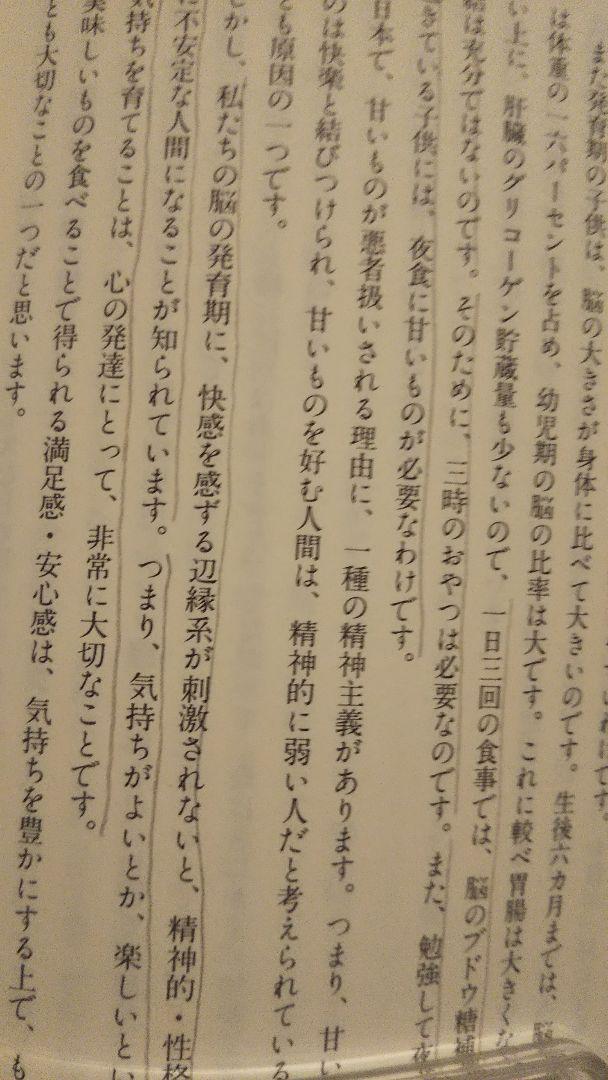 また発育期の子供は、脳の大きさが身体に比べて大きいのです。生後六カ月までは、脳
は体重の一六パーセントを占め、幼児期の脳の比率は大です。これに較べ胃腸は大きくな
い上に、肝臓のグリコーゲン貯蔵量も少ないので、一日三回の食事では、脳のブドウ糖補
給は充分ではないのです。そのために、三時のおやつは必要なのです。また、勉強して夜
きている子供には、夜食に甘いものが必要なわけです。
日本で、甘いものが悪者扱いされる理由に、一種の精神主義があります。つまり、甘い
のは快楽と結びつけられ、甘いものを好む人間は、精神的に弱い人だと考えられている
とも原因の一つです。
かし、私たちの脳の発育期に、快感を感ずる辺縁系が刺激されないと、精神的・性格
に不安定な人間になることが知られています。つまり、気持ちがよいとか、楽しいとい
気持ちを育てることは、心の発達にとって、非常に大切なことです。
美味しいものを食べることで得られる満足感・安心感は、気持ちを豊かにする上で、も
とも大切なことの一つだと思います。